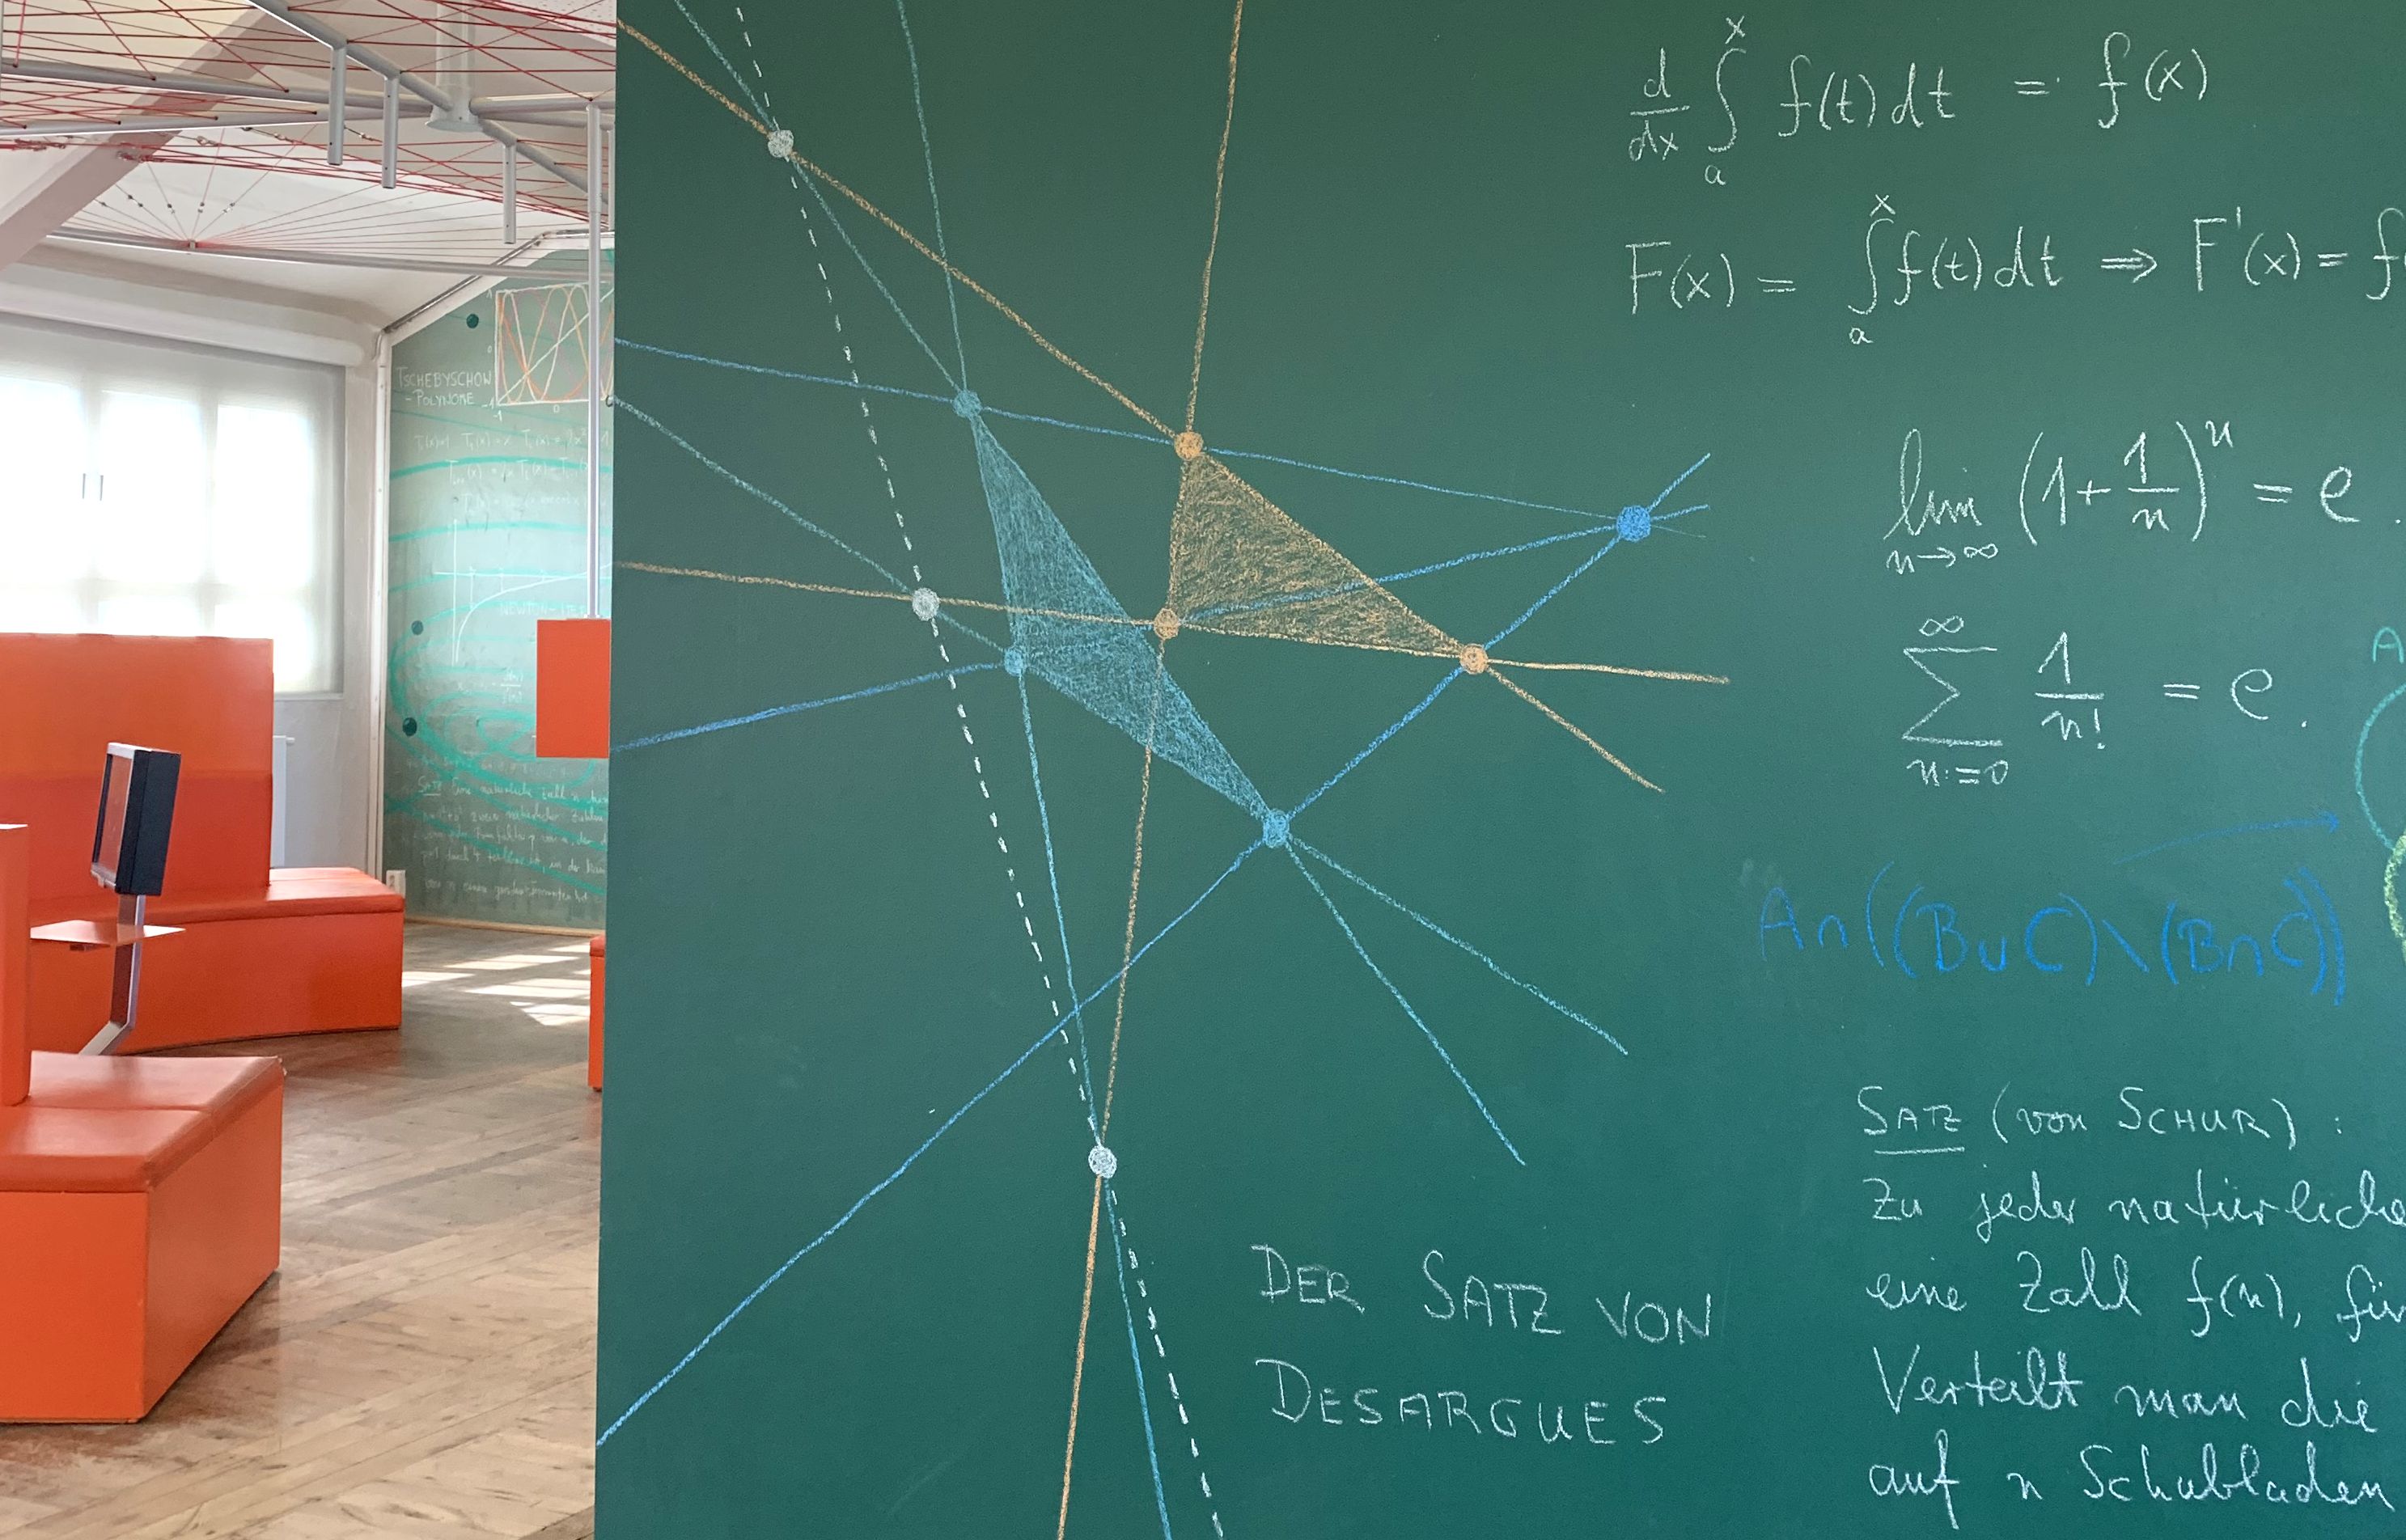 TSCHEBYSCHOW
-POLYNOME
NEWTON-ITER
d/dx ∫ₐˣ f(t) dt = f(x)
F(x) = ∫ₐˣ f(t) dt ⇒ F'(x) = f(
lim n→∞ (1 + 1/n)ⁿ = e.
∑ n:=0 ∞ 1/n! = e.
A
A∩((B∪C)\(B∩C))
DER SATZ VON
DESARGUES
SATZ (VON SCHUR):
Zu jeder natürliche
eine Zahl f(n), für
Verteilt man die
auf n Schubladen